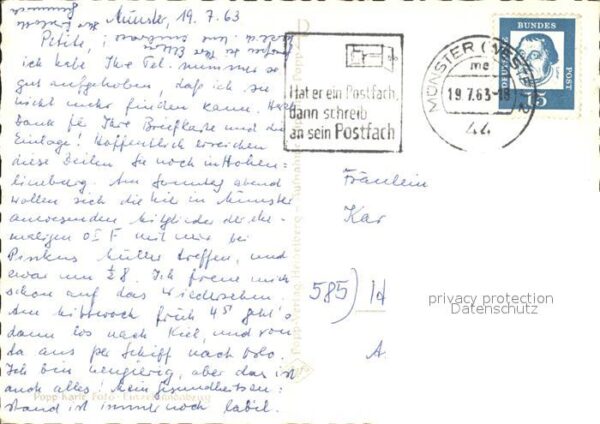 Münster, 19.7.63
Petite,
ich habe Ihre Tel. nummer so
gut aufgehoben, daß ich sie
nicht mehr finden kann. Herz.
Dank für Ihre Briefkarte und die
Einlage! Hoffentlich erreichen
diese Zeilen Sie noch in Hohen-
limburg. Am Sonntag abend
wollen sich die hie in Münster
anwesenden Mitglieder der ehe-
maligen OIF mit mir bei
Pinkus Müller treffen, und
zwar um 8. Ich freue mich
schon auf das Wiedersehen.
Am Mittwoch früh 4 geht's
dann los nach Kiel, und von
da aus per Schiff nach Oslo.
Ich bin neugierig, aber das ist
auch alles! Mein Gesundheitszu-
stand ist immer noch labil.
Hat er ein Postfach,
dann schreib
an sein Postfach
MÜNSTER (WESTF) 2
mc
19.7.63-18
44
DEUTSCHE BUNDESPOST
15
Fräulein
Kar
585) Id
A
privacy protection
Datenschutz
Popp-Verlag Heidelberg
Popp Karte Foto-Einzelhandabzug